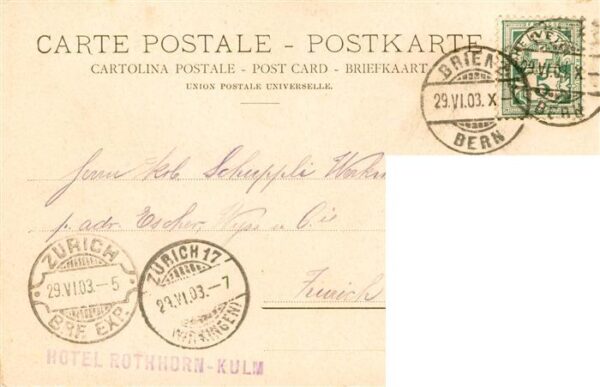 CARTE POSTALE - POSTKARTE
CARTOLINA POSTALE - POST CARD - BRIEFKAART
UNION POSTALE UNIVERSELLE.
BRIENZ
29.VI.03. X
BERN
HELVETIA
29.VI.03. X
5
BERN
Herrn Jkb. Schuppli
p. adr. Escher, Wyss & Cie
Zürich
ZÜRICH
29.VI.03.-5
BRF. EXP.
ZÜRICH 17.
29.VI.03.-7
(WIPKINGEN)
HOTEL ROTHHORN-KULM